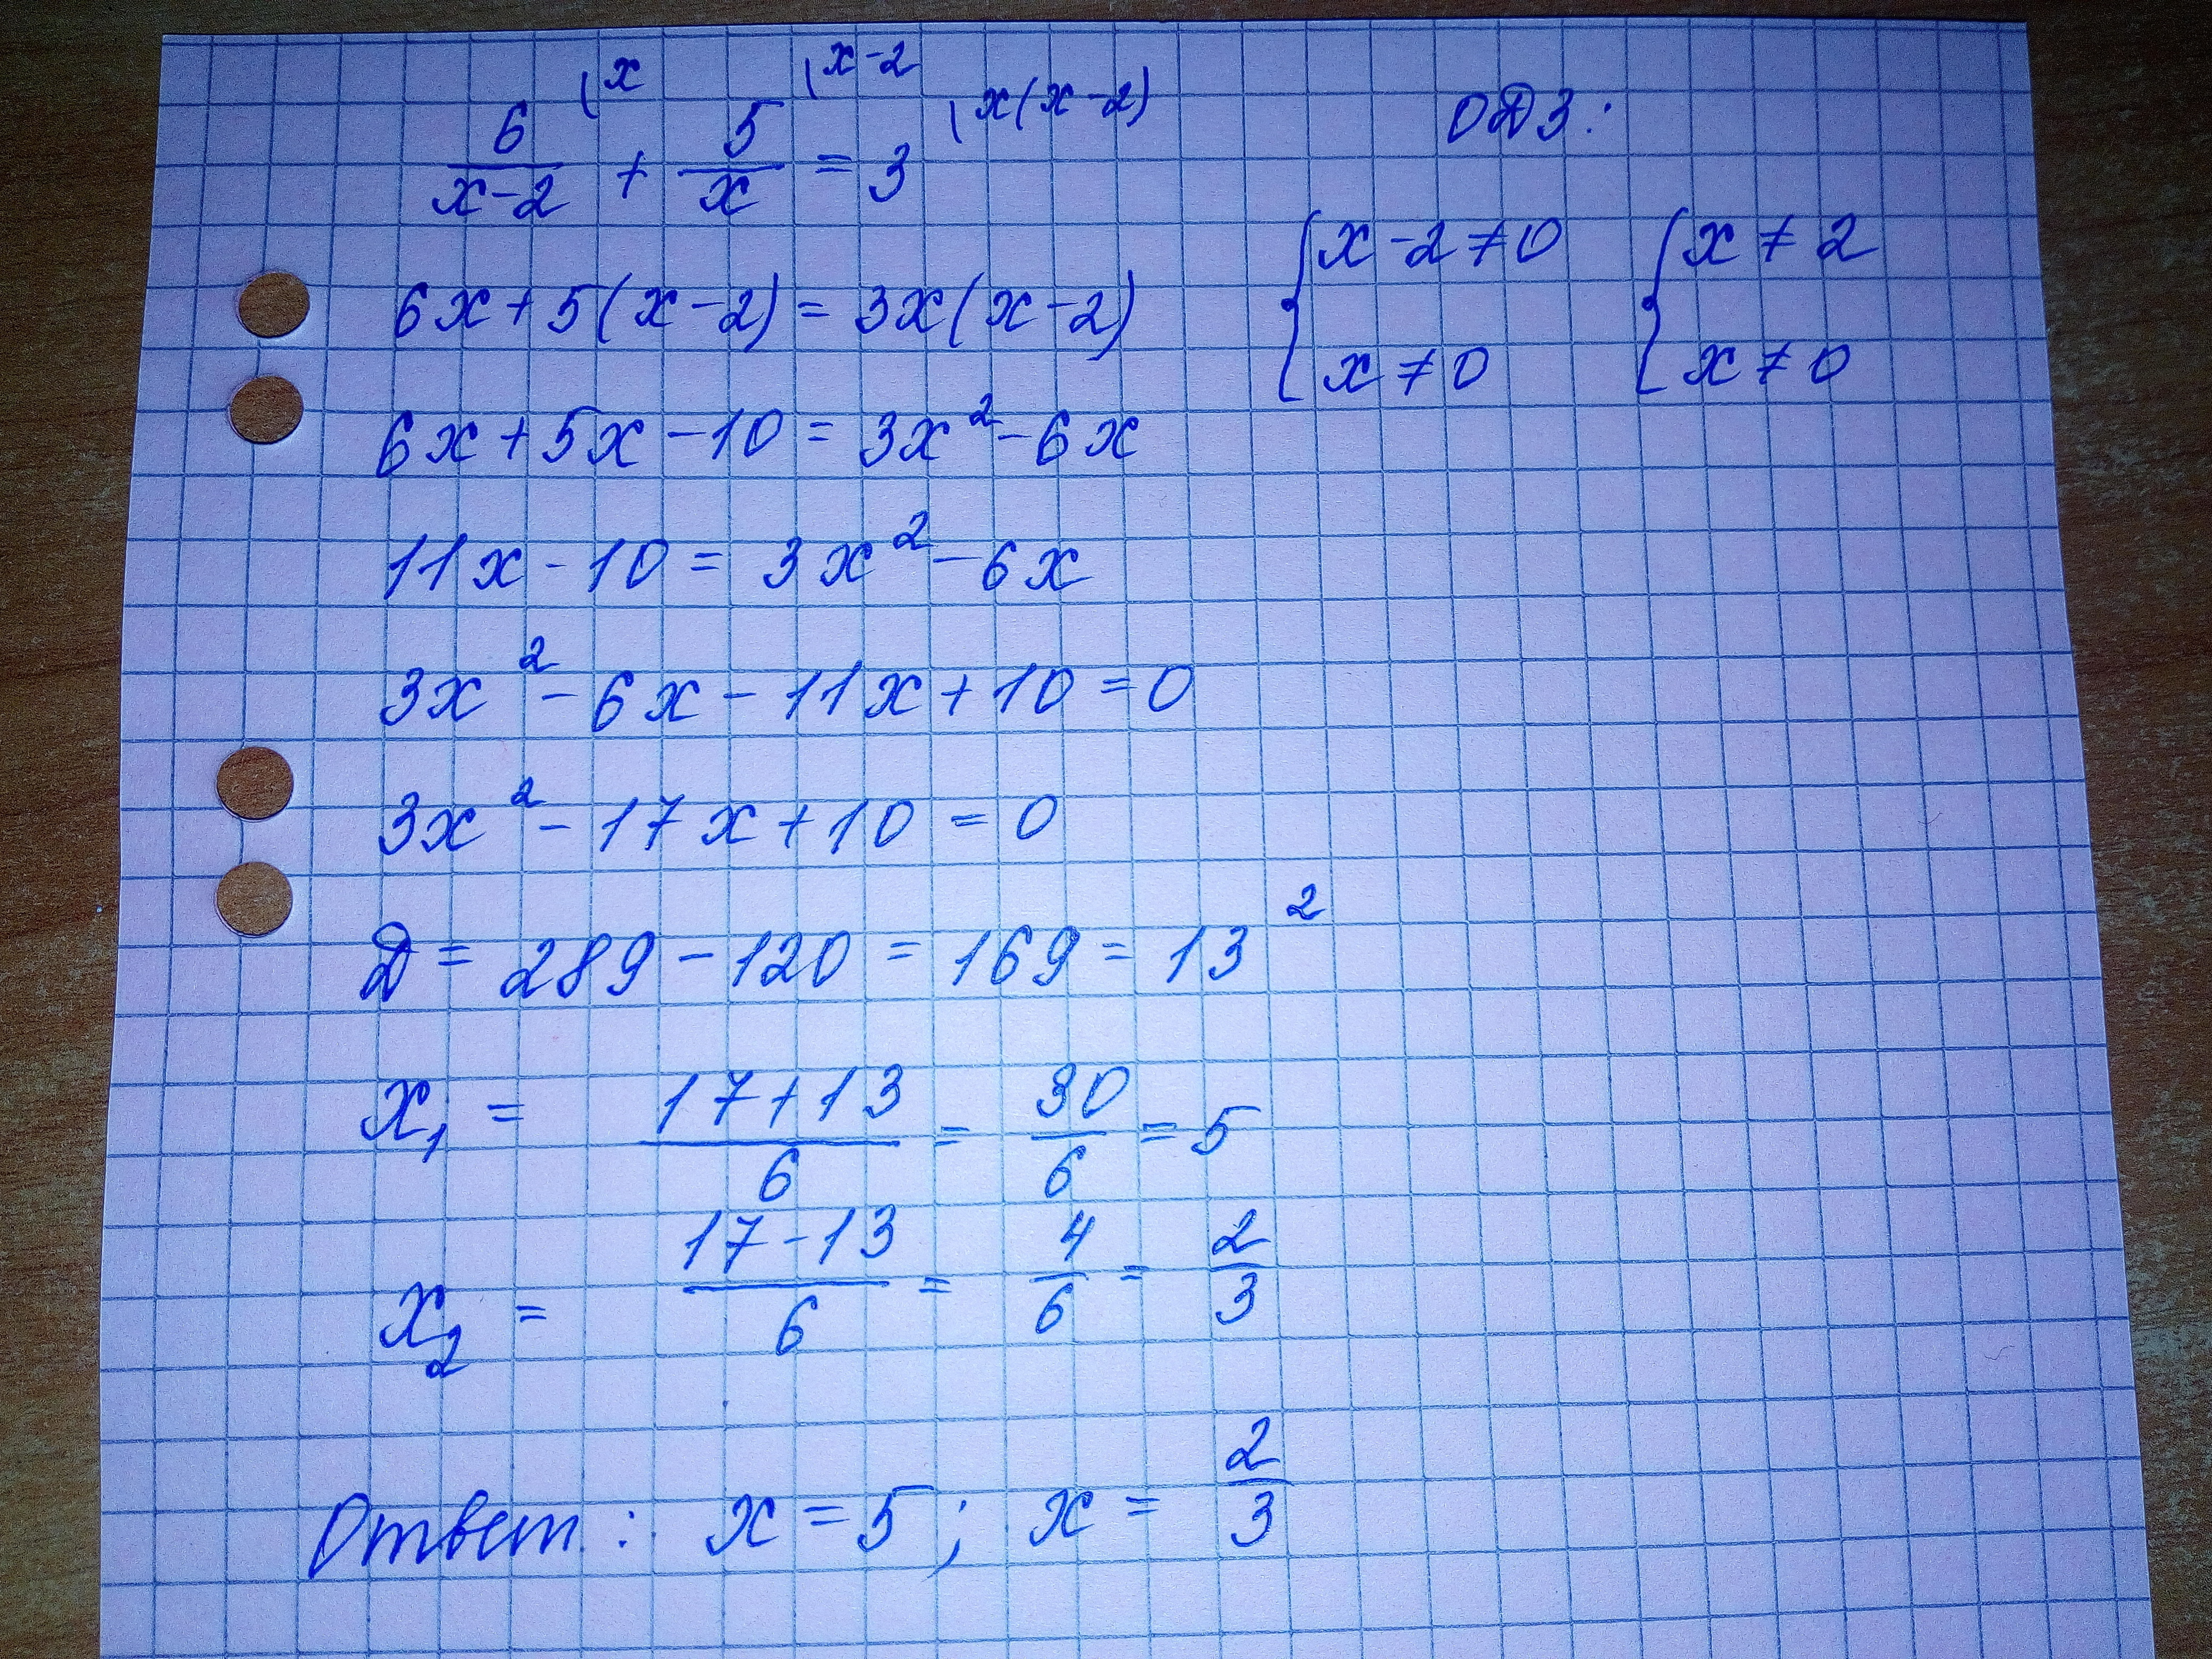 6/(x-2) |x + 5/x |x-2 = 3 |x(x-2)
ОДЗ:
{x-2≠0 {x≠2
{x≠0 {x≠0
6x+5(x-2)=3x(x-2)
6x+5x-10=3x²-6x
11x-10=3x²-6x
3x²-6x-11x+10=0
3x²-17x+10=0
Д=289-120=169=13²
x₁ = (17+13)/6 = 30/6 = 5
x₂ = (17-13)/6 = 4/6 = 2/3
Ответ: x=5; x=2/3